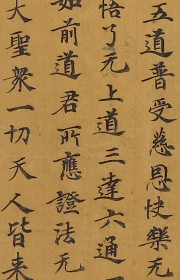 五道普受慈恩快樂无
悟了元上道三達六通
如前道君所應證法无
大聖衆一切天人皆来